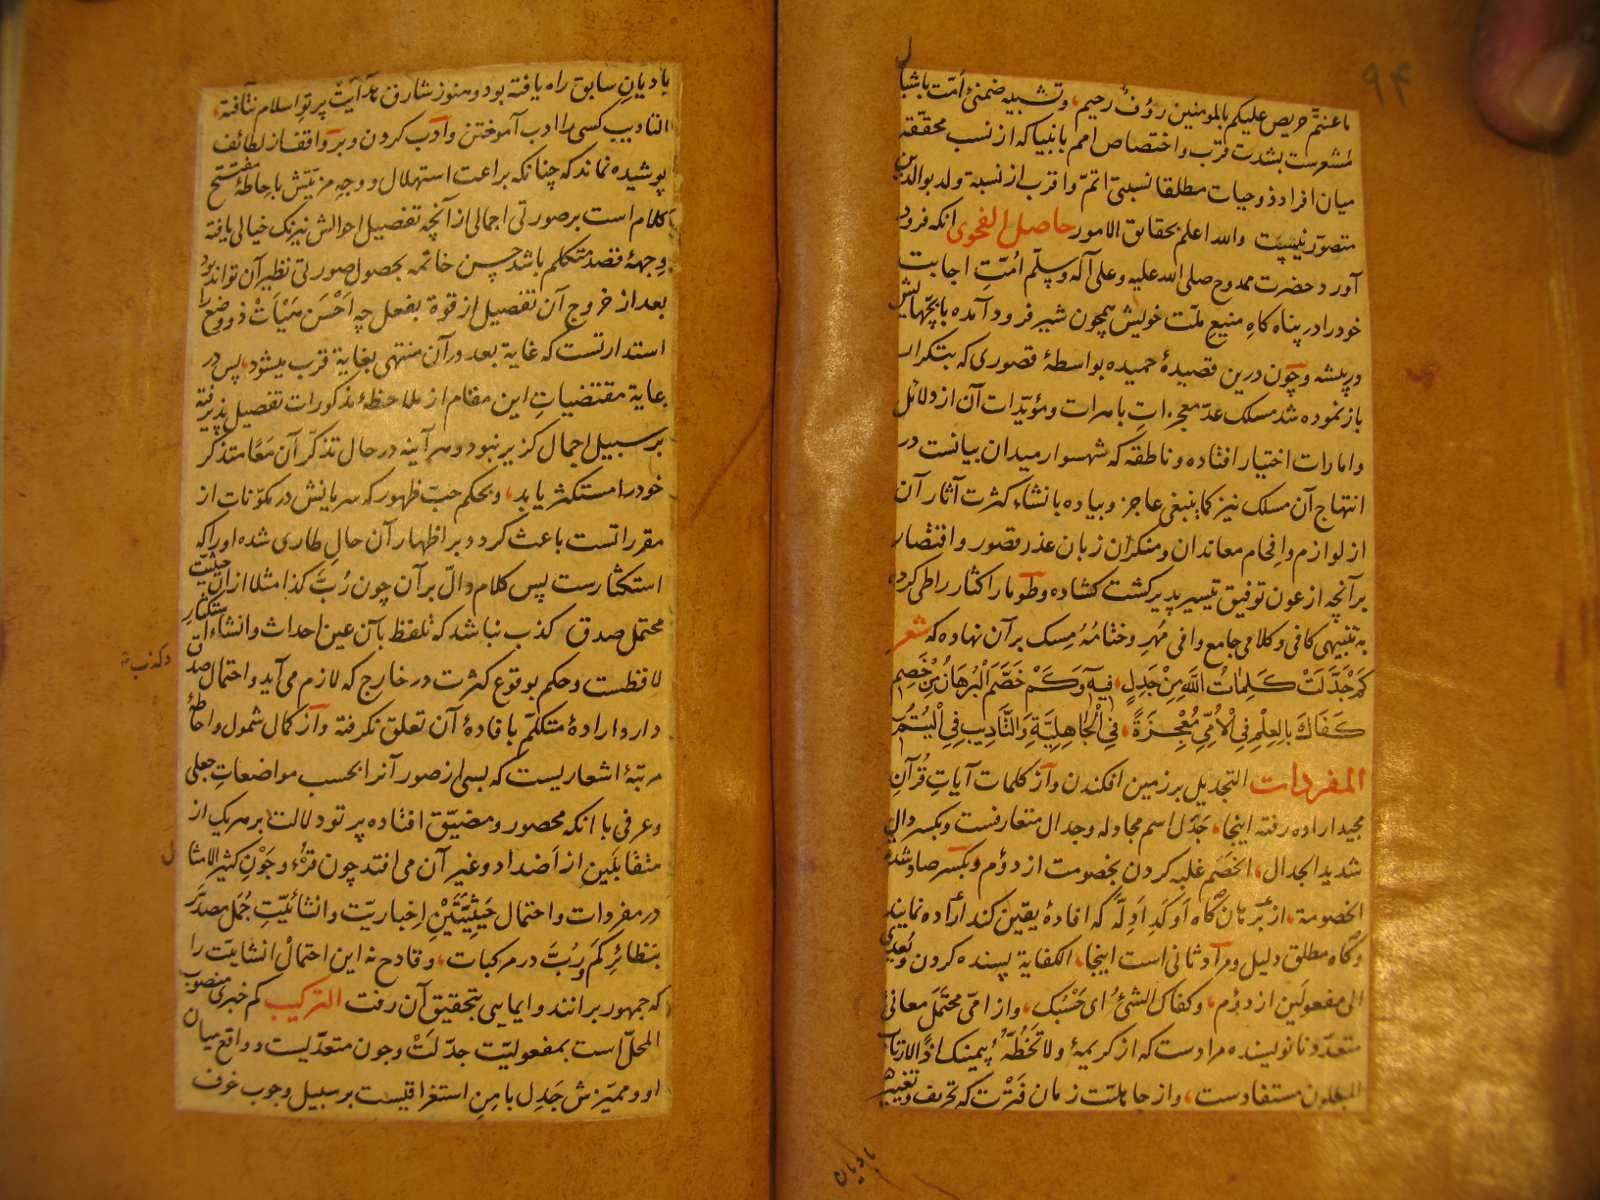 ۹۴
ما عنتّم حریص علیکم بالمومنین رؤفٌ رحیم، وتشبیه ضمنئ امّت باشبا
مُشعرست بشدت قرب واختصاص امم بانبیا که از نسب محقّقهٔ
میان افراد ذوحیات مطلقا نسبتی اتمّ واقرب از نسبة ولد بوالدین
متصوّر نیست والله اعلم بحقایق الامور حاصل الفحوی انکه فرود
آورد حضرت ممدوح صلی الله علیه وعلی آله وسلّم اُمّتِ اجابت
خود را در پناه کاهِ منیع ملّت خویش همچون شیر فرود آمده با بچّهایش
در پیشه وچون درین قصیدهٔ حمیده بواسطهٔ قصوری که بتکرار
باز نموده شد مسلک عدّ معجزاتِ باهرات ومؤیّدات آن از دلائل
وامارات اختیار افتاده وناطقه که شهسوار میدان بیانست در
انتهاج آن مسلک نیز کما ینبغی عاجز وپیاده بانشاء کثرت آثار آن
از لوازم وافحام معاندان ومنکران زبان عذر قصور واقتصار
بر آنچه از عون توفیق تیسیر پذیر کشت کشاده وطومار اکثار را طی کرده
به تنبیهی کافی وکلامی جامع وافی مُهرِ وختامُهُ مِسک بر آن نهاده که شعر
کَمْ جَدَّلَتْ کَلِمَاتُ اللّٰهِ مِنْ جَدِلٍ، فیهِ وَکَمْ خَصَّمَ الْبُرْهَانُ مِنْ خَصِمِ
کَفَاكَ بِالعِلْمِ فِی الْاُمِّیِّ مُعْجِزَةً، فِی الْجَاهِلِیَّةِ وَالتَّادِیبِ فِی الْیُتُمِ
المفردات التجدیل بر زمین افکندن واز کلمات آیاتِ قُرآنِ
مجید اراده رفته اینجا، جَدَل اسم مجادله وجدال متعارفست وبکسر دال
شدید الجدال، الخَصَم غلبه کردن بخصومت از دوُم وبکسر صاد شدید
الخصومة، از بُرهان کاه اَوکَدِ اَدِلّه که افادهٔ یقین کند اراده نمایند
وکاه مطلق دلیل ومراد ثانی است اینجا، الکفایة بسنده کردن ویُعدّی
الی مفعولَین از دوُم، وکفاك الشئُ ای حَسْبُك، واز امّی محتَمَل معانئ
متعدّد نانویسنده مرادست که از کریمهٔ ولا تَخُطّهُ بیمینك اذًا لارتاب
المبطلون مستفادست، واز جاهلیّت زمان فَتْرت که تحریف وتغییر
بادیان
بادیانِ سابق راه یافته بود وهنوز شارق هدآیت پرتو اسلام نتافته،
التادیب کسی را ادب آموختن وادب کردن وبر واقفاز لطائف
پوشیده نماند که چنانکه براعت استهلال ووجهِ مزیّتش باحاطهٔ مفتتح
کلام است بر صورتی اجمالی از آنچه تفصیل احوالش نیرنک خیالی یافته
وجههٔ قصد متکلم باشد حسن خاتمه بحصول صورتی نظیر آن تواند بود
بعد از خروج آن تفصیل از قوة بفعل چه اَحْسَن هَیْاٰتْ ذو وضع را
استدارتست که غایة بعد در آن منتهی بغایة قرب میشود، پس در
رعایة مقتضیاتِ این مقام از ملاحظهٔ مذکورات تفصیل پذیرفته
بر سبیل اجمال کزیر نبود وهر آینه در حال تذکّر آن مَعًا متذکر
خود را مستکثر یابد، وبحکم حبّ ظهور که سریانش در مکوّنات از
مقرراتست باعث کردد بر اظهار آن حالِ طاری شده او را که
استکثارست پس کلام دالّ بر آن چون رُبَّ کذا مثلا از ان حیثیّت
محتمل صدق کذب نباشد که تلفظ بآن عین احداث وانشاء استکثار
وکذب
لافظست وحکم بوقوع کثرت در خارج که لازم می آید واحتمال صدق آن
دارد ارادهٔ متکلّم بافادهٔ آن تعلق نکرفته واز کمال شمول واحاطهٔ
مرتبهٔ اشعاریست که بسی از صور آنرا بحسب مواضعاتِ جعلی
وعرفی با انکه محصور ومضیّق افتاده پرتو دلالت بر هر یک از
متقابلَین از اَضداد وغیر آن می افتد چون قُرْء وجَوْنِ کثیر الامثا
ل
در مفردات واحتمال حَیثِیّتَیْنِ اِخباریّت وانشائیّتِ جُمَل مصدّر
بنظائرِ کَم ورُبَّ در مرکبات، وقادح نه این احتمالْ انشایّت را
که جمهور برانند وایمایی بتحقیق آن رفت الترکیب کم خبری منصوب
المحلّ است بمفعولیّت جدّلَتْ وچون متعدّیست وواقع میان
او وممیّزش جَدِل با مِنِ استغراقیست بر سبیل وجوب خوف